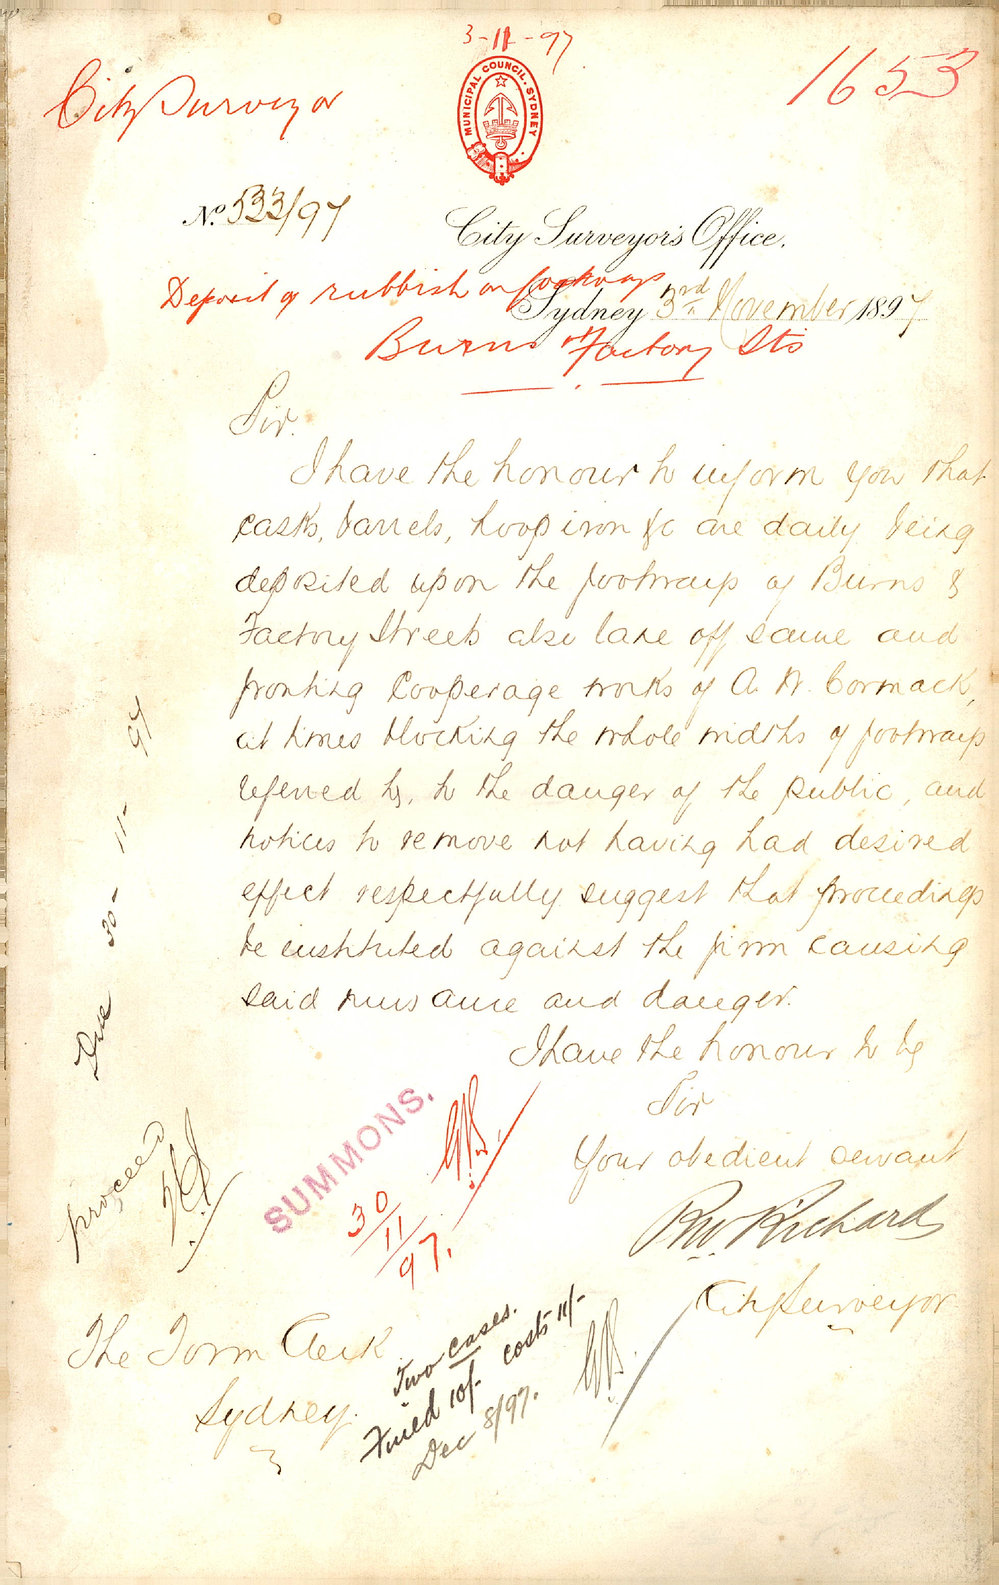 3-11-97
City Surveyor
1653
MUNICIPAL COUNCIL. SYDNEY
No. 533/97
City Surveyor's Office.
Deposit of rubbish on footways
Sydney 3rd November 1897
Burns & Factory Sts
Sir.
I have the honour to inform you that
casks, barrels, hoop iron &c are daily being
deposited upon the footways of Burns &
Factory Streets also lane off same and
fronting Cooperage works of A. W. Cormack,
at times blocking the whole widths of footways
referred to, to the danger of the public, and
notices to remove not having had desired
effect respectfully suggest that proceedings
be instituted against the firm causing
said nuisance and danger.
I have the honour to be
Sir
Your obedient servant
RW Richards
City Surveyor
The Town Clerk
Sydney.
Due 30-11-97
proceed
SUMMONS.
30/11/97.
Two cases.
Fined 10/- costs 11/-
Dec 8/97.